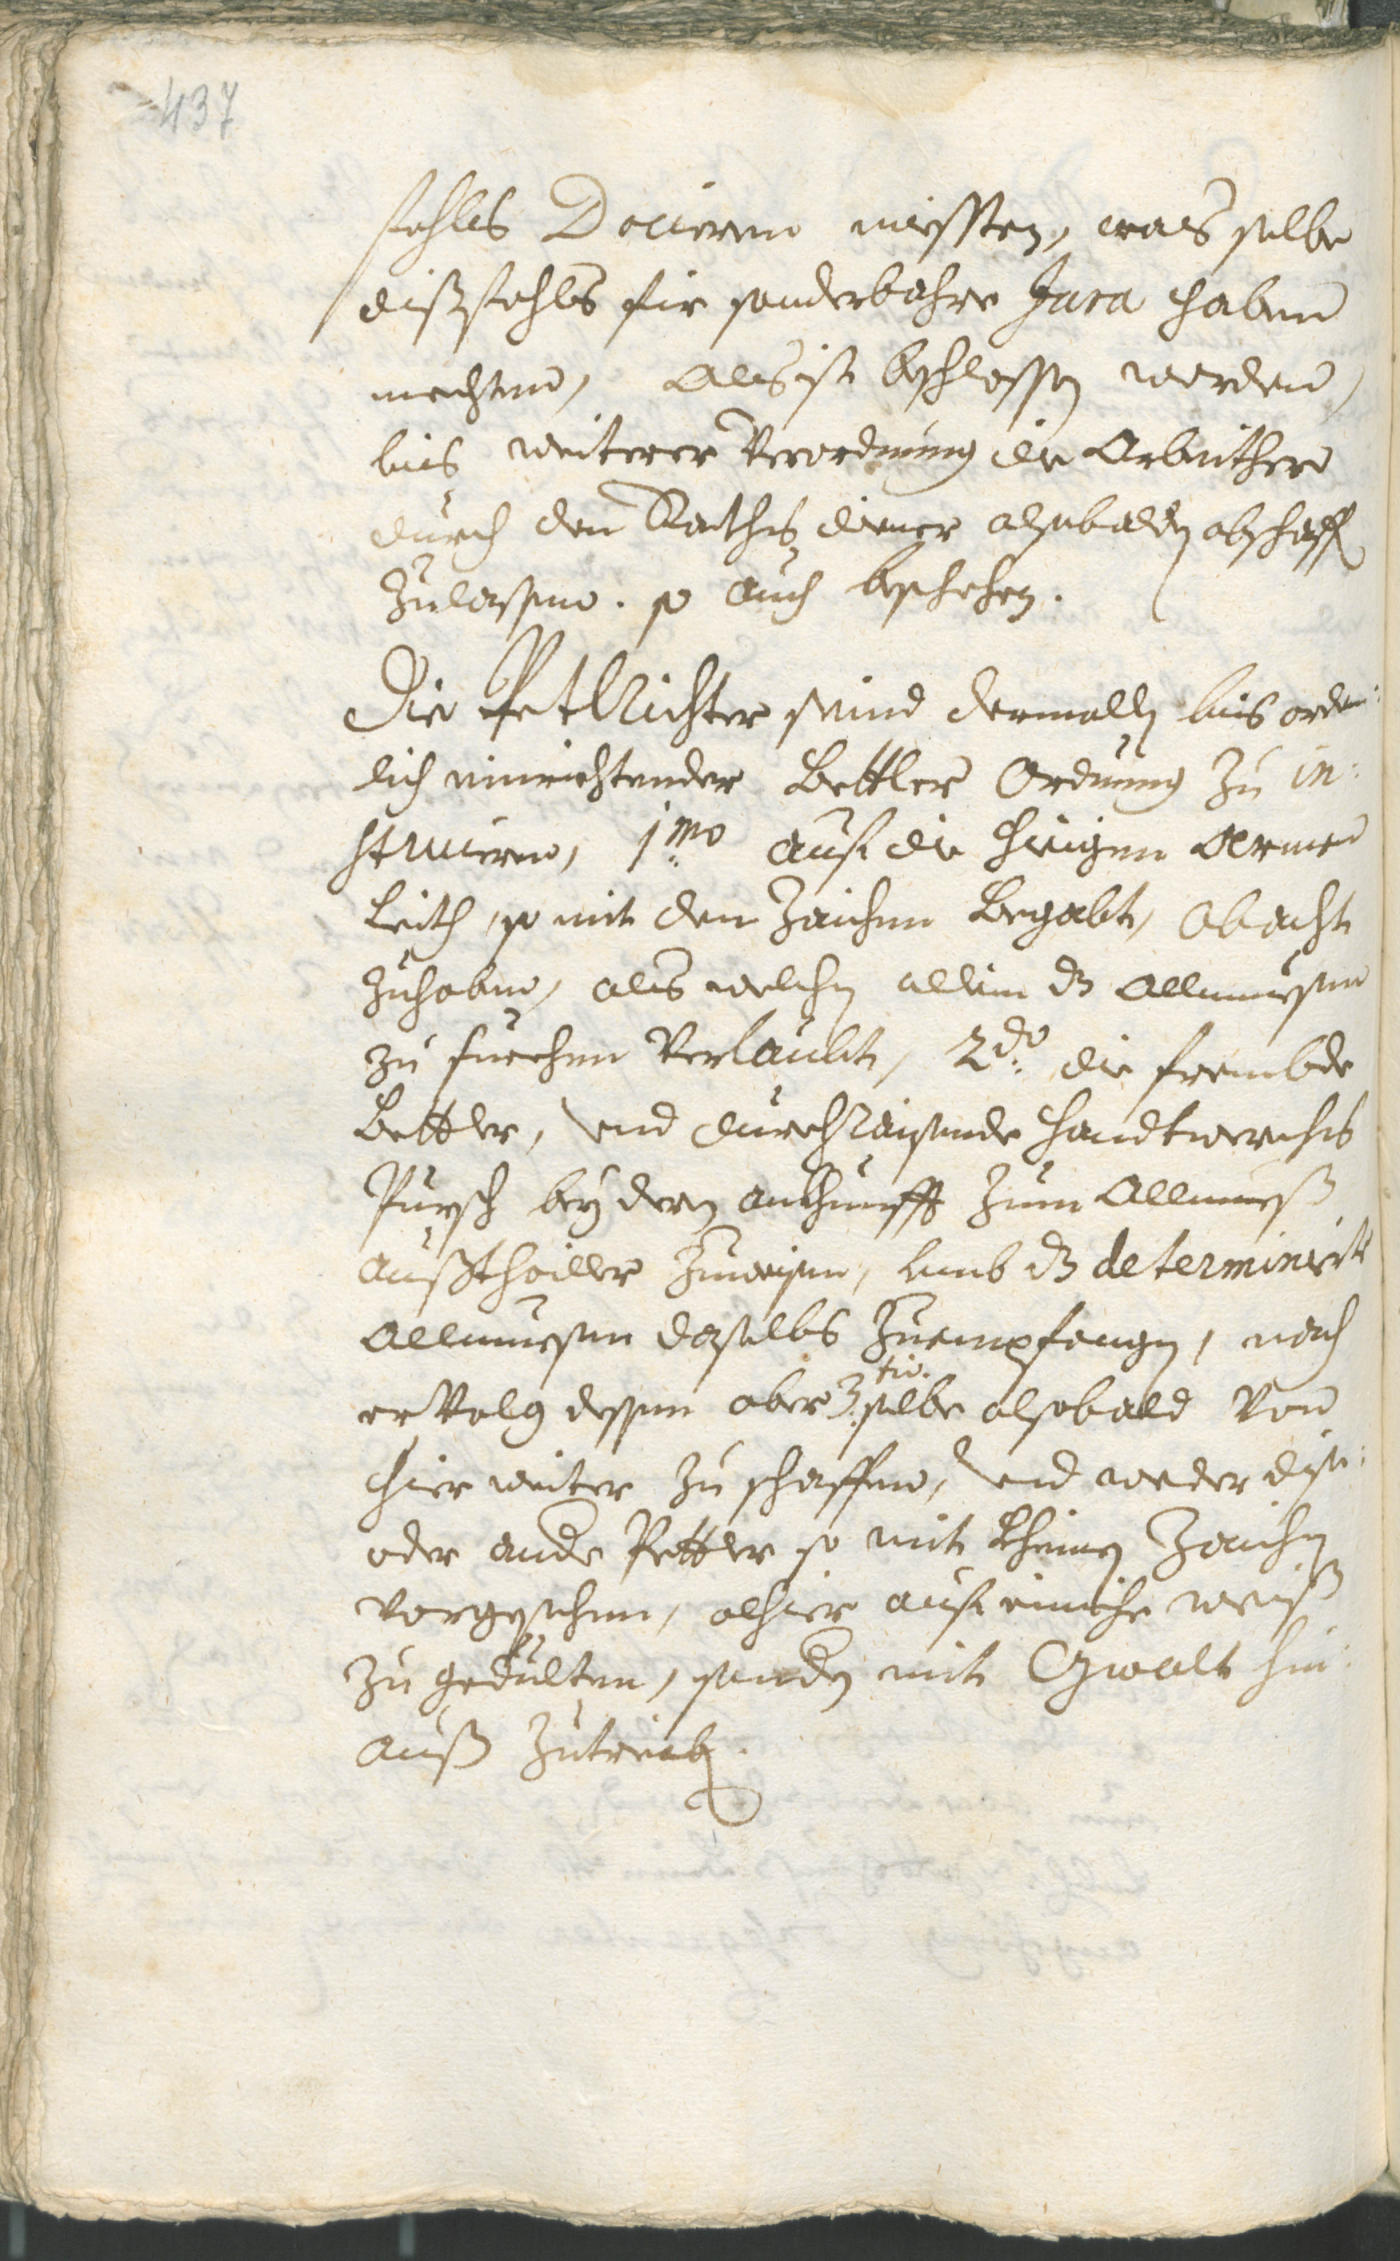 437
fahls Docieren miessten, was selbe
dißfahls für sonderbahre Jura haben
mechten, Als ist beschlossen worden,
bis weiterer Verordnung die Arbeither
durch den Raths diener alsobalden abschaff
zulassen. so auch beschehen.
Die PetlRichter seind dermallen bis orden:
lich einrichtender Bettler Ordnung zu in:
struiren, 1mo auf die hieigen Armen
Leith, so mit den Zaichen Begabt, Obacht
zuhaben, als welchen allein dz Allmuesen
zu suechen Verlaubt, 2do: die frembde
Bettler, und durchRaisende Handtwerchs
Pursch bey dern ankhunfft zum Allmueß
Außthailler zuweisen, umb dz determinirte
Allmuesen daselbs zuempfangen, nach
erVolg dessen aber 3tio. selbe alsobald Von
hier weiter zu schaffen, und weder dise:
oder ande Pettler so mit kheinen Zaichen
vorgesehen, alhier auf einiche weiß
zu gedulten, sondern mit Gwalt hin:
auß zutreiben.